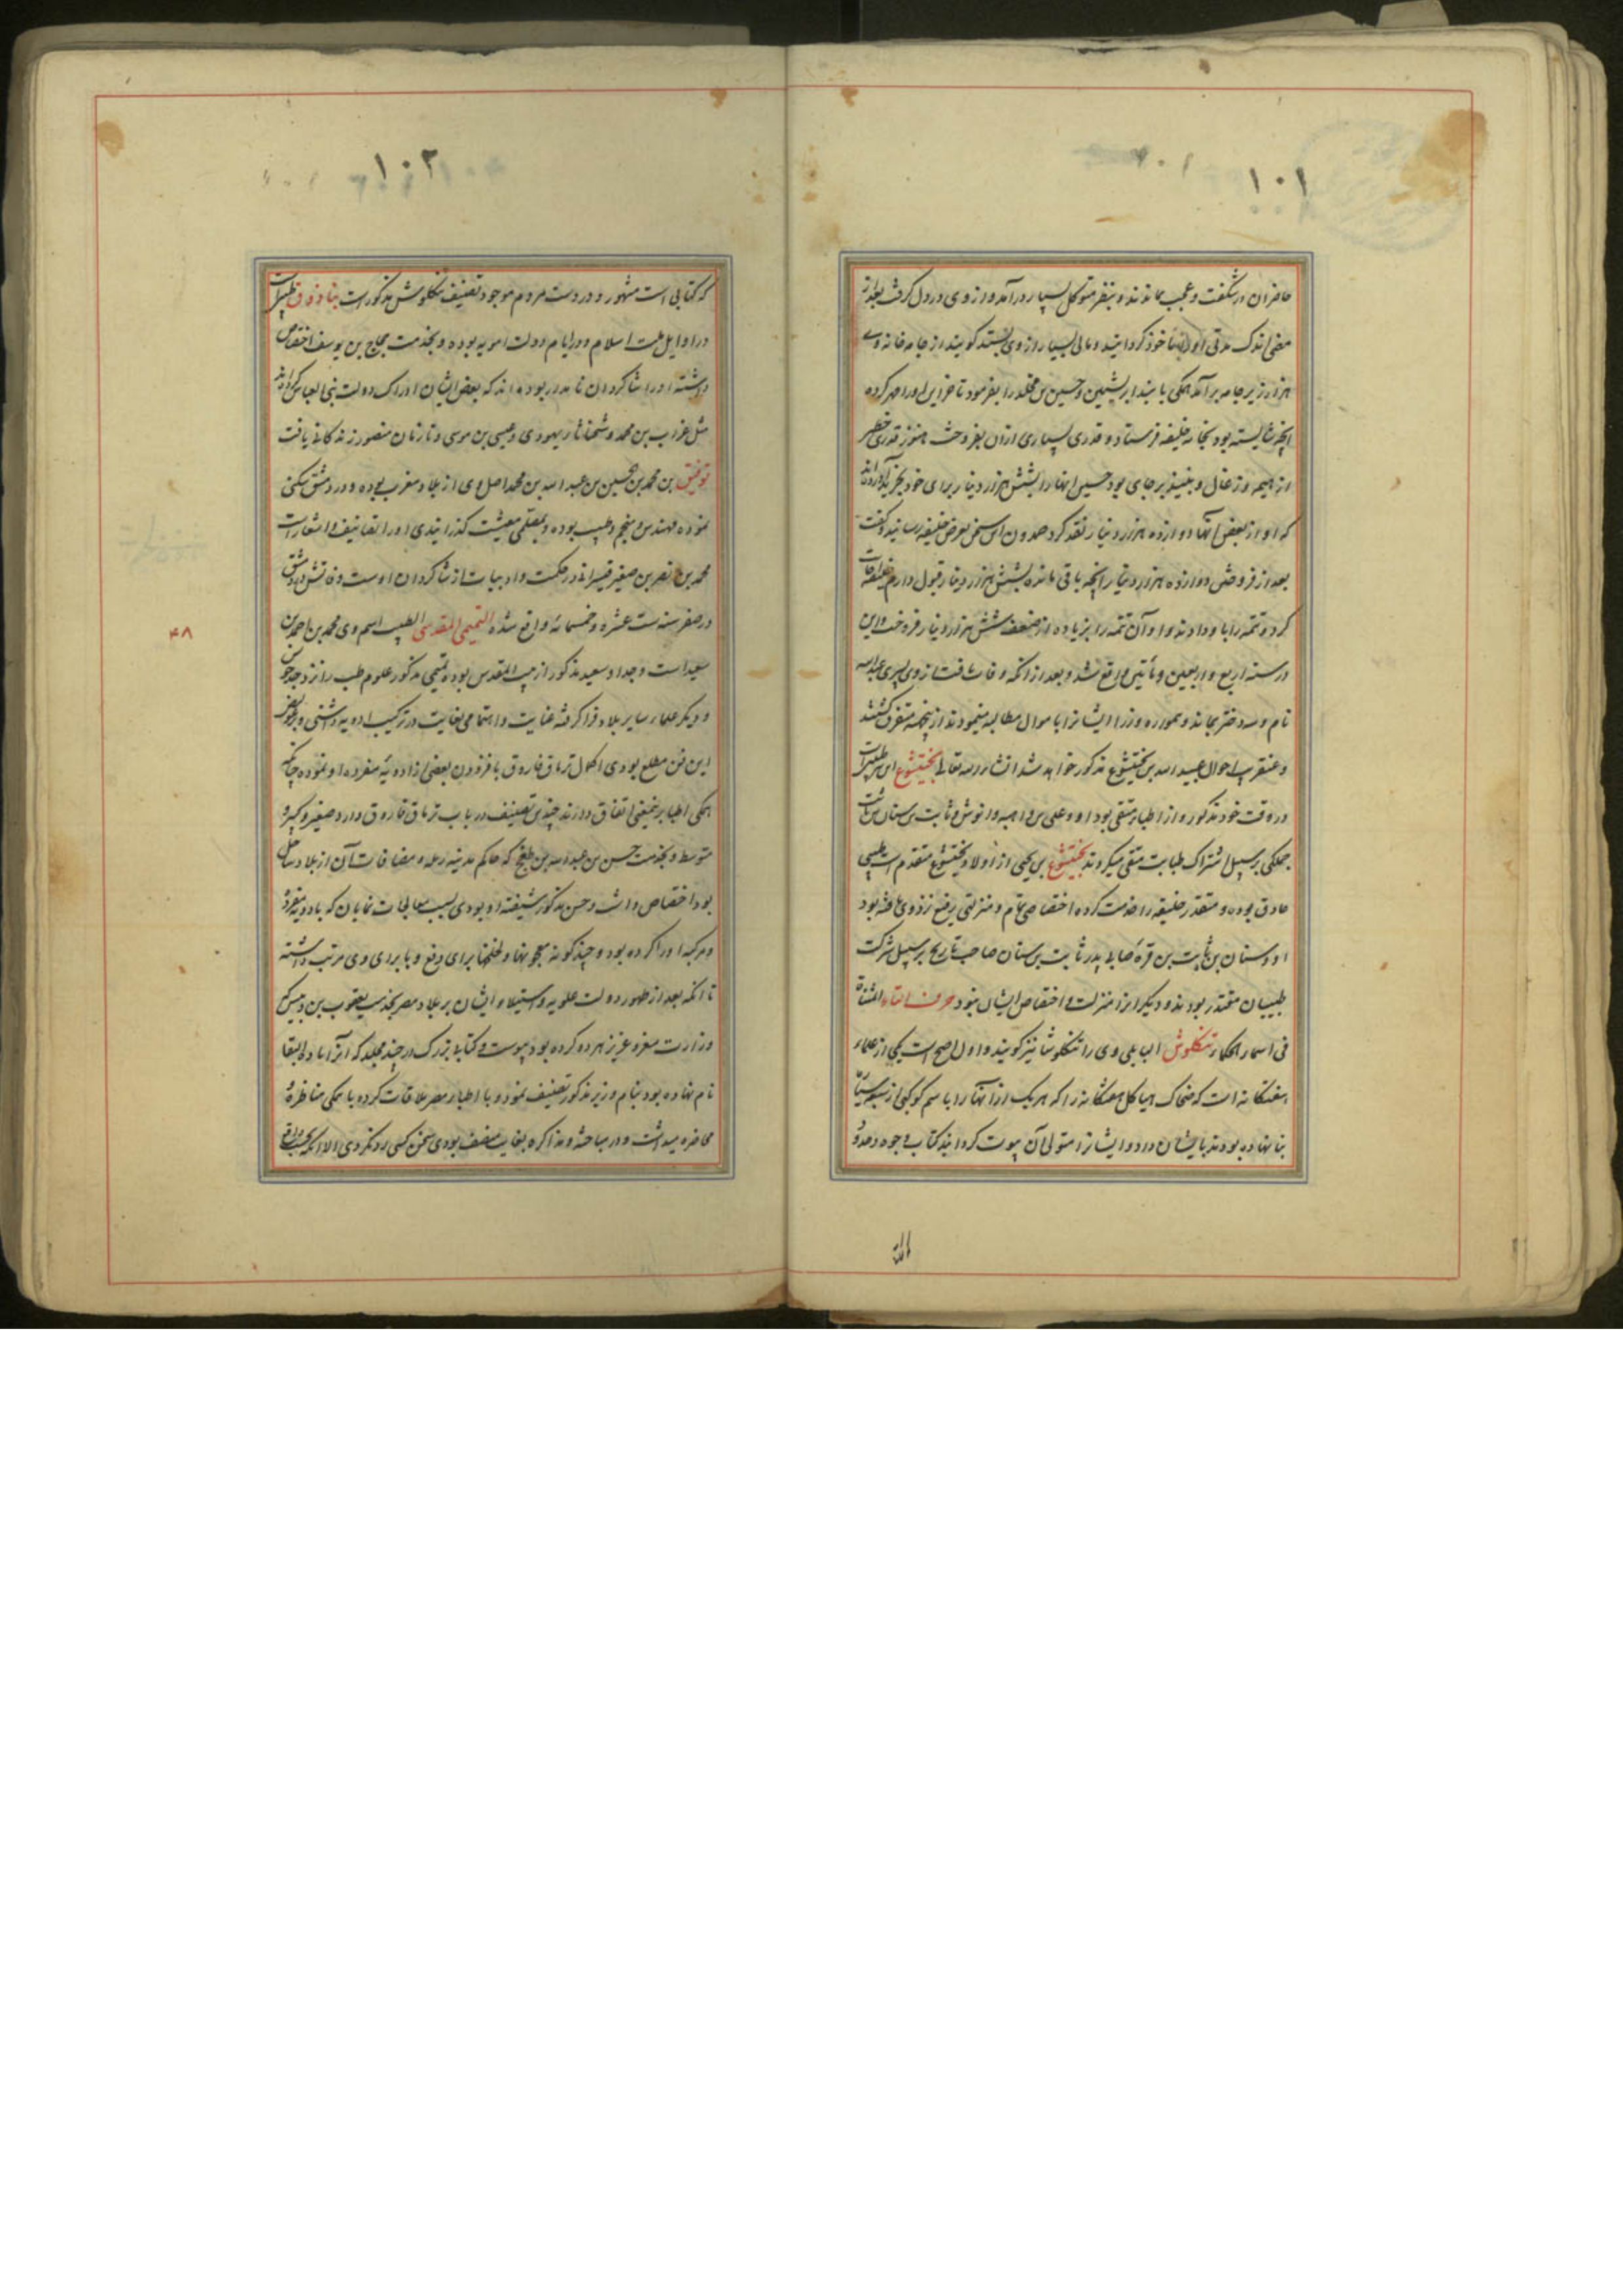 ۱۰۱
حاضران در شگفت و عجب بماندند و بنظر متوکل بسیار درآمد و از وی در دل گرفت بعد از
مضی اندک مدتی او را مأخوذ گردانید و مالی بسیار از وی بستد گویند از جامه خانه وی
هزار زیر جامه برآمد همگی با بند ابریشمین و حسین بن مخلد را بفرمود تا خزاین او را مهر کرده
آنچه شایسته بود بخانه خلیفه فرستاد و قدری بسیاری از آن بفروخت هنوز قدری خطیر
از هیمه و زغال و نبیذ بر جای بود حسین اینها را بشش هزار دینار برای خود بخرید
که او از بعض آنها دوازده هزار دینار نقد کرد حمدون این سخن بعرض خلیفه رسانید و گفت
بعد از فروختن دوازده هزار دینار آنچه باقی مانده بشش هزار دینار قبول دارم خلیفه اجابت
کرد و تتمه را باو دادند و او آن تتمه را بزیاده از ضعف شش هزار دینار فروخت و این
در سنه اربع و اربعین و مأتین واقع شد و بعد از آنکه وفات یافت از وی پسری عبدالله
نام و سه دختر بماند و همواره وزرا ایشانرا باموال مطالبه مینمودند ازینجهه متفرق گشتند
و عنقریب احوال عبیدالله بن بختیشوع مذکور خواهد شد انشاءالله تعالی بختیشوع این طبیب است
در وقت خود مذکور و از اطباء متقی بود او و علی بن واهبه و انوش و ثابت بن سنان بن ثابت
جملگی بر سبیل اشتراک طبابت متقی میکردند بختیشوع بن یحیی از اولاد بختیشوع متقدم است طبیبی
حاذق بوده و مقتدر خلیفه را خدمت کرده اختصاصی تام و منزلتی رفیع نزد وی یافته بود
او و سنان بن ثابت بن قره صابی پدر ثابت بن سنان صاحب تاریخ بر سبیل شرکت
طبیبان مقتدر بودند و دیگر را آن منزلت و اختصاص ایشان نبود حرف التاء المثناة
فی اسماء الحکماء تنکلوش البابلی وی را تنکلوشا نیز گویند و اول اصح است یکی از علماء
هفتگانه است که ضحاک هیاکل هفتگانه را که هر یک از آنها را باسم کوکبی از سبعه سیاره
بنا نهاده بودند بایشان داد و ایشانرا متولی آن بیوت گردانید کتاب وجوه و حدود
الی
۱۰۲
که کتابی است مشهور و در دست مردم موجود تصنیف تنکلوش مذکور است تیاذوق طبیب است
در اوایل ملت اسلام و در ایام دولت امویه بوده و بخدمت حجاج بن یوسف اختصاص
داشته او را شاگردان نامدار بوده‌اند که بعض ایشان ادراک دولت بنی العباس کرده‌اند
مثل فرات بن شحناثا یهودی و عیسی بن موسی و تا زمان منصور زندگانی یافت
توفیق بن محمد بن حسین بن عبدالله بن محمد اصل وی از بلاد مغرب بوده و در دمشق سکنی
نموده مهندس و منجم و طبیب بوده و بمعلمی معیشت گذرانیدی او را تصانیف و اشعار است
محمد بن نصر بن صغیر قیسرانی در حکمت و ادبیات از شاگردان اوست وفاتش در دمشق
در صفر سنه ست عشره و خمسمائه واقع شده التمیمی المقدسی الطبیب اسم وی محمد بن احمد بن
سعید است و جد او سعید مذکور از بیت المقدس بوده تمیمی مذکور علوم طب را از جد خویش
و دیگر علماء سایر بلاد فرا گرفته عنایت و اهتمامی بغایت در ترکیب ادویه داشتی و بر غوامض
این فن مطلع بودی اکمال تریاق فاروق بافزودن بعضی از ادویه مفرده او نموده چنانکه
همگی اطبا برینمعنی اتفاق دارند چندین تصنیف در باب تریاق فاروق دارد صغیر و کبیر و
متوسط و بخدمت حسن بن عبدالله بن طغج که حاکم مدینه رمله و مضافات آن از بلاد ساحل
بود اختصاص داشت و حسن مذکور شیفته او بودی بسبب معالجات نمایان که بادویه مفرده
و مرکبه او را کرده بود و چند گونه معجونها و لخلخها برای دفع وبا برای وی مرتب داشته
تا آنکه بعد از ظهور دولت علویه و استیلاء ایشان بر بلاد مصر بخدمت یعقوب بن کلس که
وزارت معز و عزیز هر دو کرده بود پیوست و کتابی بزرگ در چند مجلد که آنرا مادة البقا
نام نهاده بود بنام وزیر مذکور تصنیف نمود و با اطباء مصر ملاقات کرده با همگی مناظره و
محاضره میداشت و در مباحثه و مذاکره بغایت منصف بودی سخن کسی رد نکردی الا آنکه
۴۸